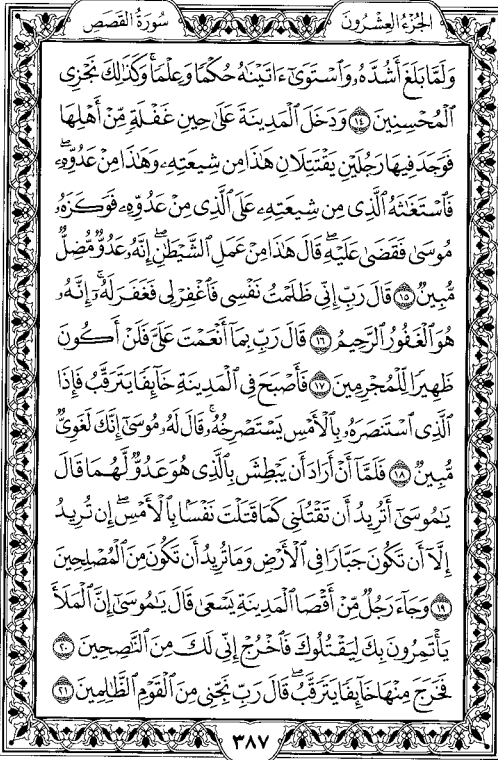 سُورَةُ القَصَصِ
الجُزْءُ العِشْرُونَ
وَلَمَّا بَلَغَ أَشُدَّهُۥ وَٱسْتَوَىٰٓ ءَاتَيْنَٰهُ حُكْمًا وَعِلْمًا ۚ وَكَذَٰلِكَ نَجْزِى
ٱلْمُحْسِنِينَ ١٤ وَدَخَلَ ٱلْمَدِينَةَ عَلَىٰ حِينِ غَفْلَةٍ مِّنْ أَهْلِهَا
فَوَجَدَ فِيهَا رَجُلَيْنِ يَقْتَتِلَانِ هَٰذَا مِن شِيعَتِهِۦ وَهَٰذَا مِنْ عَدُوِّهِۦ ۖ
فَٱسْتَغَٰثَهُ ٱلَّذِى مِن شِيعَتِهِۦ عَلَى ٱلَّذِى مِنْ عَدُوِّهِۦ فَوَكَزَهُۥ
مُوسَىٰ فَقَضَىٰ عَلَيْهِ ۖ قَالَ هَٰذَا مِنْ عَمَلِ ٱلشَّيْطَٰنِ ۖ إِنَّهُۥ عَدُوٌّ مُّضِلٌّ
مُّبِينٌ ١٥ قَالَ رَبِّ إِنِّى ظَلَمْتُ نَفْسِى فَٱغْفِرْ لِى فَغَفَرَ لَهُۥٓ ۚ إِنَّهُۥ
هُوَ ٱلْغَفُورُ ٱلرَّحِيمُ ١٦ قَالَ رَبِّ بِمَآ أَنْعَمْتَ عَلَىَّ فَلَنْ أَكُونَ
ظَهِيرًا لِّلْمُجْرِمِينَ ١٧ فَأَصْبَحَ فِى ٱلْمَدِينَةِ خَآئِفًا يَتَرَقَّبُ فَإِذَا
ٱلَّذِى ٱسْتَنصَرَهُۥ بِٱلْأَمْسِ يَسْتَصْرِخُهُۥ ۚ قَالَ لَهُۥ مُوسَىٰٓ إِنَّكَ لَغَوِىٌّ
مُّبِينٌ ١٨ فَلَمَّآ أَنْ أَرَادَ أَن يَبْطِشَ بِٱلَّذِى هُوَ عَدُوٌّ لَّهُمَا قَالَ
يَٰمُوسَىٰٓ أَتُرِيدُ أَن تَقْتُلَنِى كَمَا قَتَلْتَ نَفْسًۢا بِٱلْأَمْسِ ۖ إِن تُرِيدُ
إِلَّآ أَن تَكُونَ جَبَّارًا فِى ٱلْأَرْضِ وَمَا تُرِيدُ أَن تَكُونَ مِنَ ٱلْمُصْلِحِينَ
١٩ وَجَآءَ رَجُلٌ مِّنْ أَقْصَا ٱلْمَدِينَةِ يَسْعَىٰ قَالَ يَٰمُوسَىٰٓ إِنَّ ٱلْمَلَأَ
يَأْتَمِرُونَ بِكَ لِيَقْتُلُوكَ فَٱخْرُجْ إِنِّى لَكَ مِنَ ٱلنَّٰصِحِينَ ٢٠
فَخَرَجَ مِنْهَا خَآئِفًا يَتَرَقَّبُ ۖ قَالَ رَبِّ نَجِّنِى مِنَ ٱلْقَوْمِ ٱلظَّٰلِمِينَ ٢١
٣٨٧